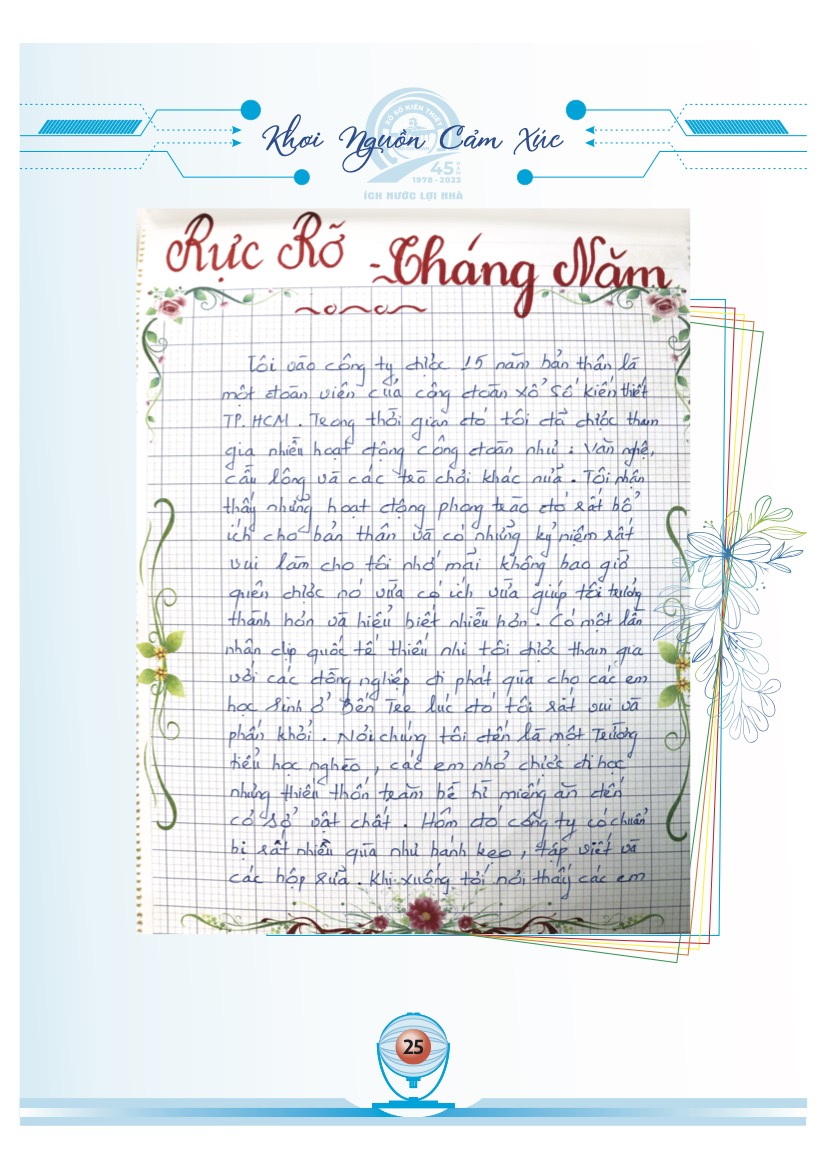 XỔ SỐ KIẾN THIẾT
Khơi Nguồn Cảm Xúc
45 NĂM
1978 - 2023
ÍCH NƯỚC LỢI NHÀ
Rực Rỡ - Tháng Năm
Tôi vào công ty được 15 năm bản thân là
một đoàn viên của công đoàn xổ số kiến thiết
TP. HCM. Trong thời gian đó tôi đã được tham
gia nhiều hoạt động công đoàn như : Văn nghệ,
cầu lông và các trò chơi khác nữa. Tôi nhận
thấy những hoạt động phong trào đó rất bổ
ích cho bản thân và có những kỷ niệm rất
vui làm cho tôi nhớ mãi không bao giờ
quên được nó vừa có ích vừa giúp tôi trưởng
thành hơn và hiểu biết nhiều hơn. Có một lần
nhân dịp quốc tế thiếu nhi tôi được tham gia
với các đồng nghiệp đi phát quà cho các em
học sinh ở Bến Tre lúc đó tôi rất vui và
phấn khởi. Nơi chúng tôi đến là một Trường
tiểu học nghèo, các em nhỏ được đi học
nhưng thiếu thốn trăm bề từ miếng ăn đến
cơ sở vật chất. Hôm đó công ty có chuẩn
bị rất nhiều quà như bánh kẹo, tập viết và
các hộp sữa. Khi xuống tới nơi thấy các em
25